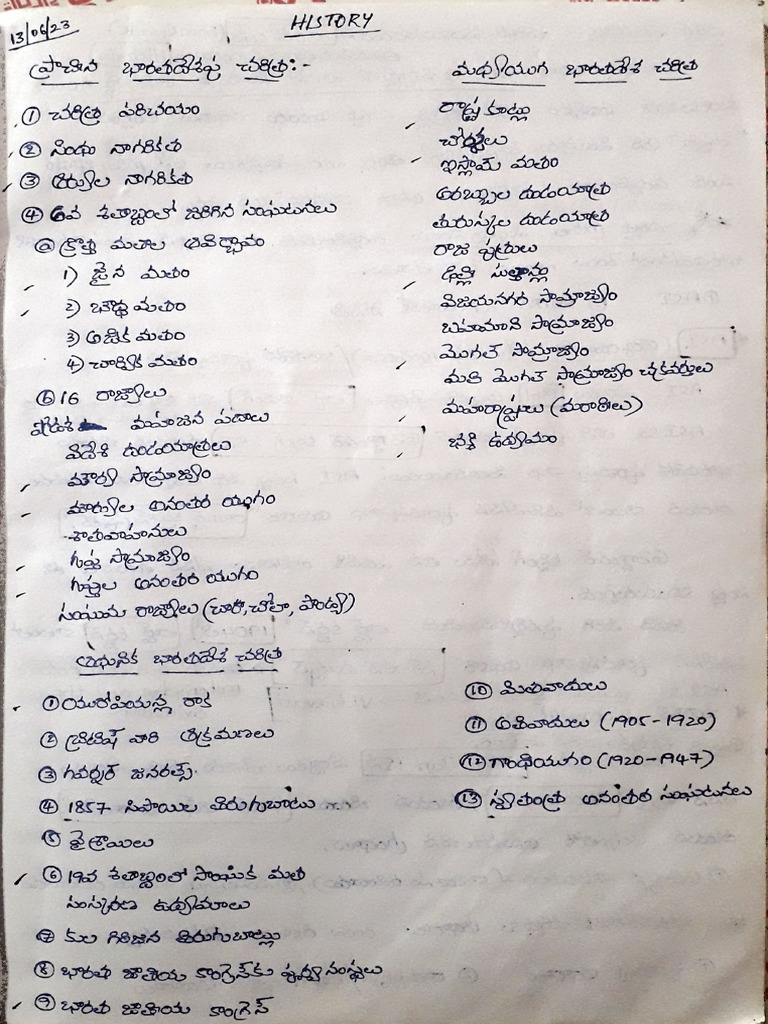 13/06/23
HISTORY
ప్రాచీన భారతదేశపు చరిత్ర:-
① చరిత్ర పరిచయం
② సింధు నాగరికత
③ ఆర్యుల నాగరికత
④ 6వ శతాబ్దంలో జరిగిన సంఘటనలు
ⓐ క్రొత్త మతాల ఆవిర్భావం
1) జైన మతం
2) బౌద్ధ మతం
3) అజీవిక మతం
4) చార్వాక మతం
ⓑ 16 రాజ్యాలు
మహాజన పదాలు
విదేశీ దండయాత్రలు
మౌర్య సామ్రాజ్యం
మౌర్యుల అనంతర యుగం
శాతవాహనులు
గుప్త సామ్రాజ్యం
గుప్తుల అనంతర యుగం
సంఘమ రాజ్యాలు (చేర, చోళ, పాండ్య)
మధ్యయుగ భారతదేశ చరిత్ర
రాష్ట్రకూటులు
చోళులు
ఇస్లామ్ మతం
అరబ్బుల దండయాత్ర
తురుస్కుల దండయాత్ర
రాజ పుత్రులు
ఢిల్లీ సుల్తాన్లు
విజయనగర సామ్రాజ్యం
బహమనీ సామ్రాజ్యం
మొగల్ సామ్రాజ్యం
మలి మొగల్ సామ్రాజ్యం చక్రవర్తులు
మహారాష్ట్రులు (మరాఠీలు)
భక్తి ఉద్యమం
ఆధునిక భారతదేశ చరిత్ర
① యురోపియన్ల రాక
② బ్రిటిష్ వారి ఆక్రమణలు
③ గవర్నర్ జనరల్స్
④ 1857 సిపాయిల తిరుగుబాటు
⑤ వైశ్రాయిలు
⑥ 19వ శతాబ్దంలో సాంఘిక మత
సంస్కరణ ఉద్యమాలు
⑦ కుల గిరిజన తిరుగుబాట్లు
⑧ భారత జాతీయ కాంగ్రెస్‌కు పూర్వ సంస్థలు
⑨ భారత జాతీయ కాంగ్రెస్
⑩ మితవాదులు
⑪ అతివాదులు (1905-1920)
⑫ గాంధీయుగం (1920-1947)
⑬ స్వతంత్ర అనంతర సంఘటనలు